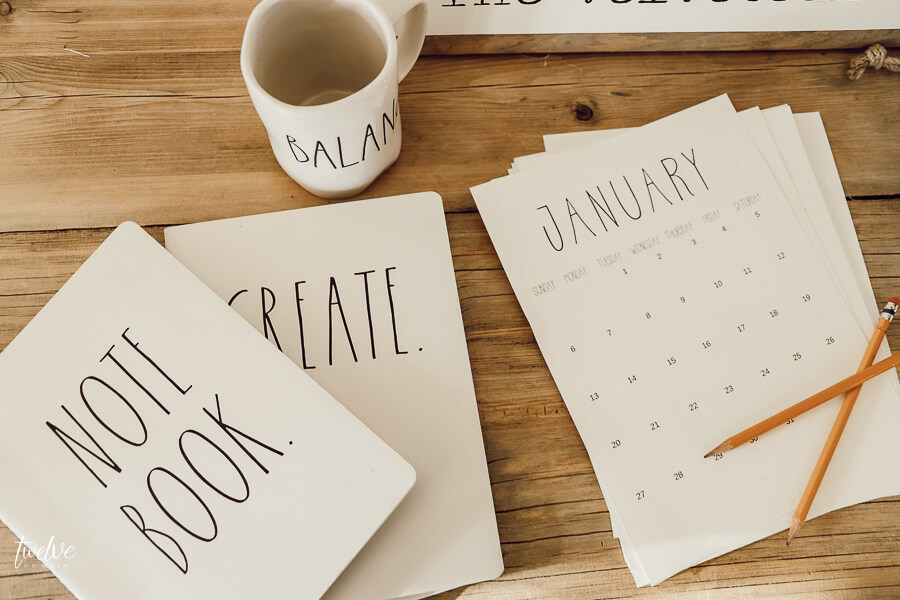 BALAN
JANUARY
SUNDAY MONDAY TUESDAY WEDNESDAY THURSDAY FRIDAY SATURDAY
1 2 3 4 5
6 7 8 9 10 11 12
13 14 15 16 17 18 19
20 21 22 23 24 25 26
27 28 29 30 31
CREATE.
NOTE
BOOK.
twelve